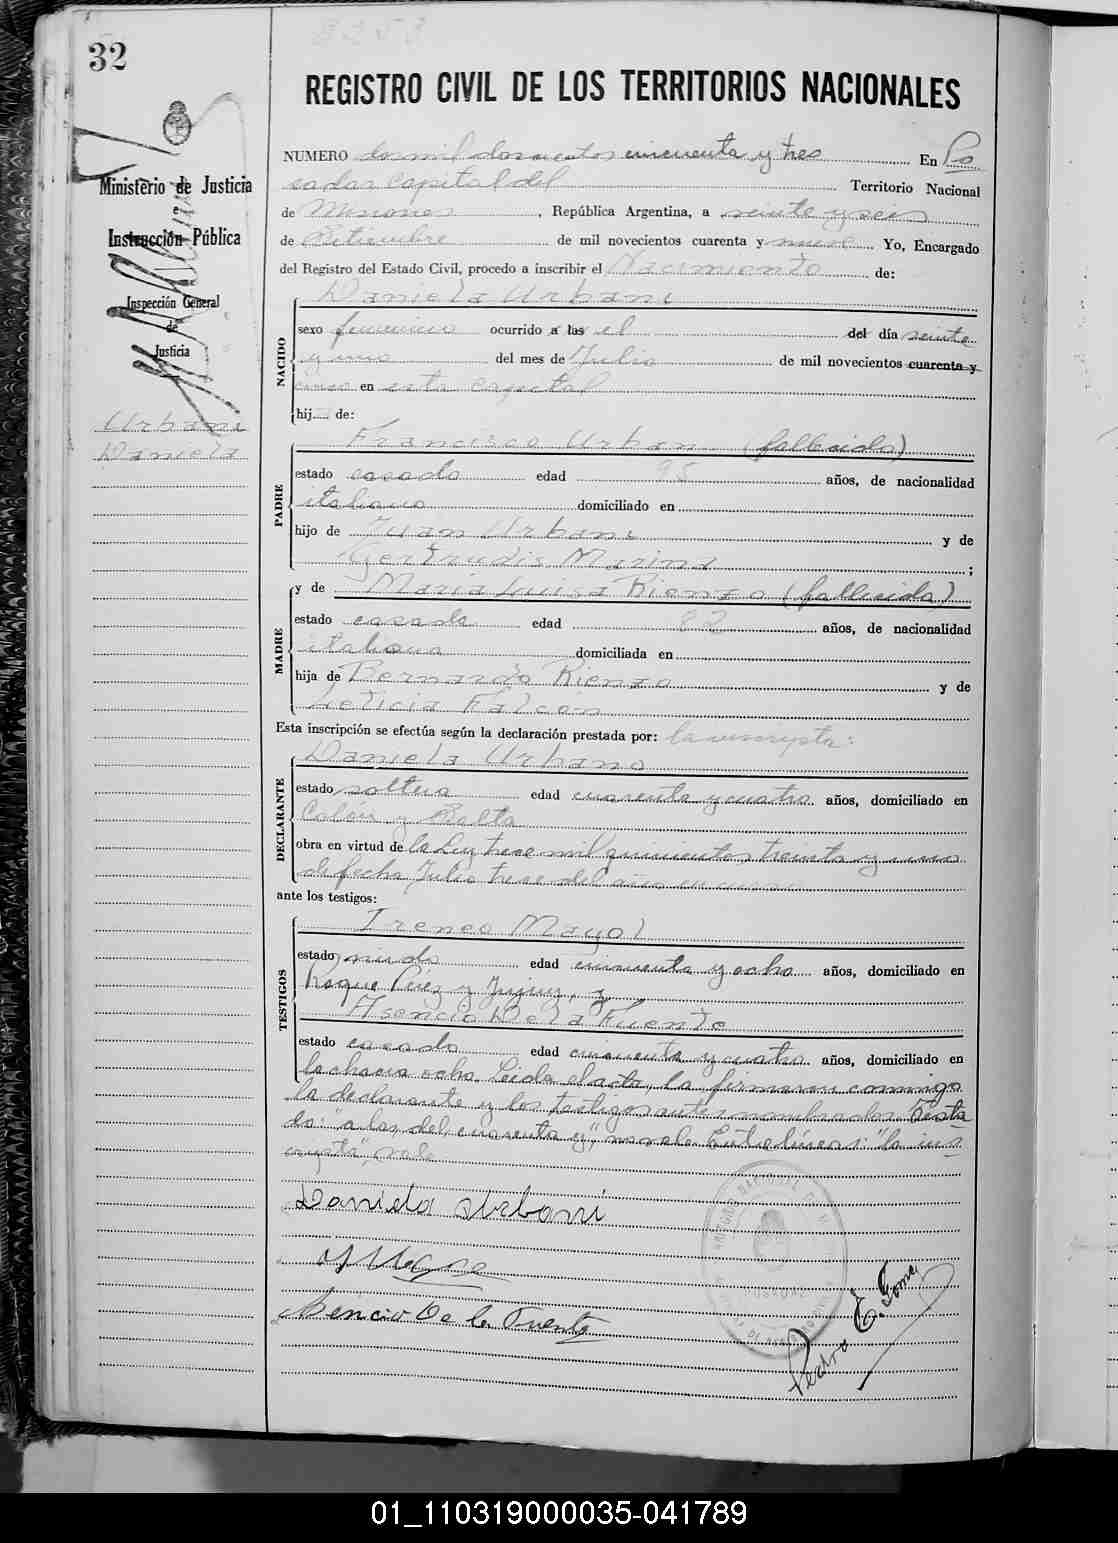 32
2253
REGISTRO CIVIL DE LOS TERRITORIOS NACIONALES
Ministerio de Justicia
Instrucción Pública
Inspección General
de
Justicia
Urbani
Daniela
NUMERO dos mil doscientos cincuenta y tres En Po
sadas Capital del Territorio Nacional
de Misiones, República Argentina, a veinte y seis
de Setiembre de mil novecientos cuarenta y nueve Yo, Encargado
del Registro del Estado Civil, procedo a inscribir el Nacimiento de:
NACIDO
Daniela Urbani
sexo femenino ocurrido a las el del día veinte
y uno del mes de Julio de mil novecientos cuarenta y
cinco en esta capital
hij de:
PADRE
Francisco Urbani (fallecido)
estado casado edad 95 años, de nacionalidad
italiano domiciliado en
hijo de Juan Urbani y de
Gertrudis Marina;
MADRE
y de María Luisa Rienzo (fallecida)
estado casada edad 82 años, de nacionalidad
italiana domiciliada en
hija de Bernardo Rienzo y de
Leticia Falcón
Esta inscripción se efectúa según la declaración prestada por: la inscripta:
DECLARANTE
Daniela Urbano
estado soltera edad cuarenta y cuatro años, domiciliado en
Colón y Salta
obra en virtud de la Ley trece mil quinientos treinta y uno
de fecha Julio trece del año en curso
ante los testigos:
TESTIGOS
Ireneo Mayol
estado viudo edad cincuenta y ocho años, domiciliado en
Roque Pérez y Jujuy, y
Asencio De la Fuente
estado casado edad cincuenta y cuatro años, domiciliado en
la chacra ocho. Leída el acta, la firmaron conmigo
la declarante y los testigos antes nombrados. Testa
do: "a las, del, cuarenta y", no vale. Entrelíneas: "la ins
cripta", vale
Daniela Urbani
Asencio De la Fuente
Pedro E. Gome
POSADAS
01_110319000035-041789